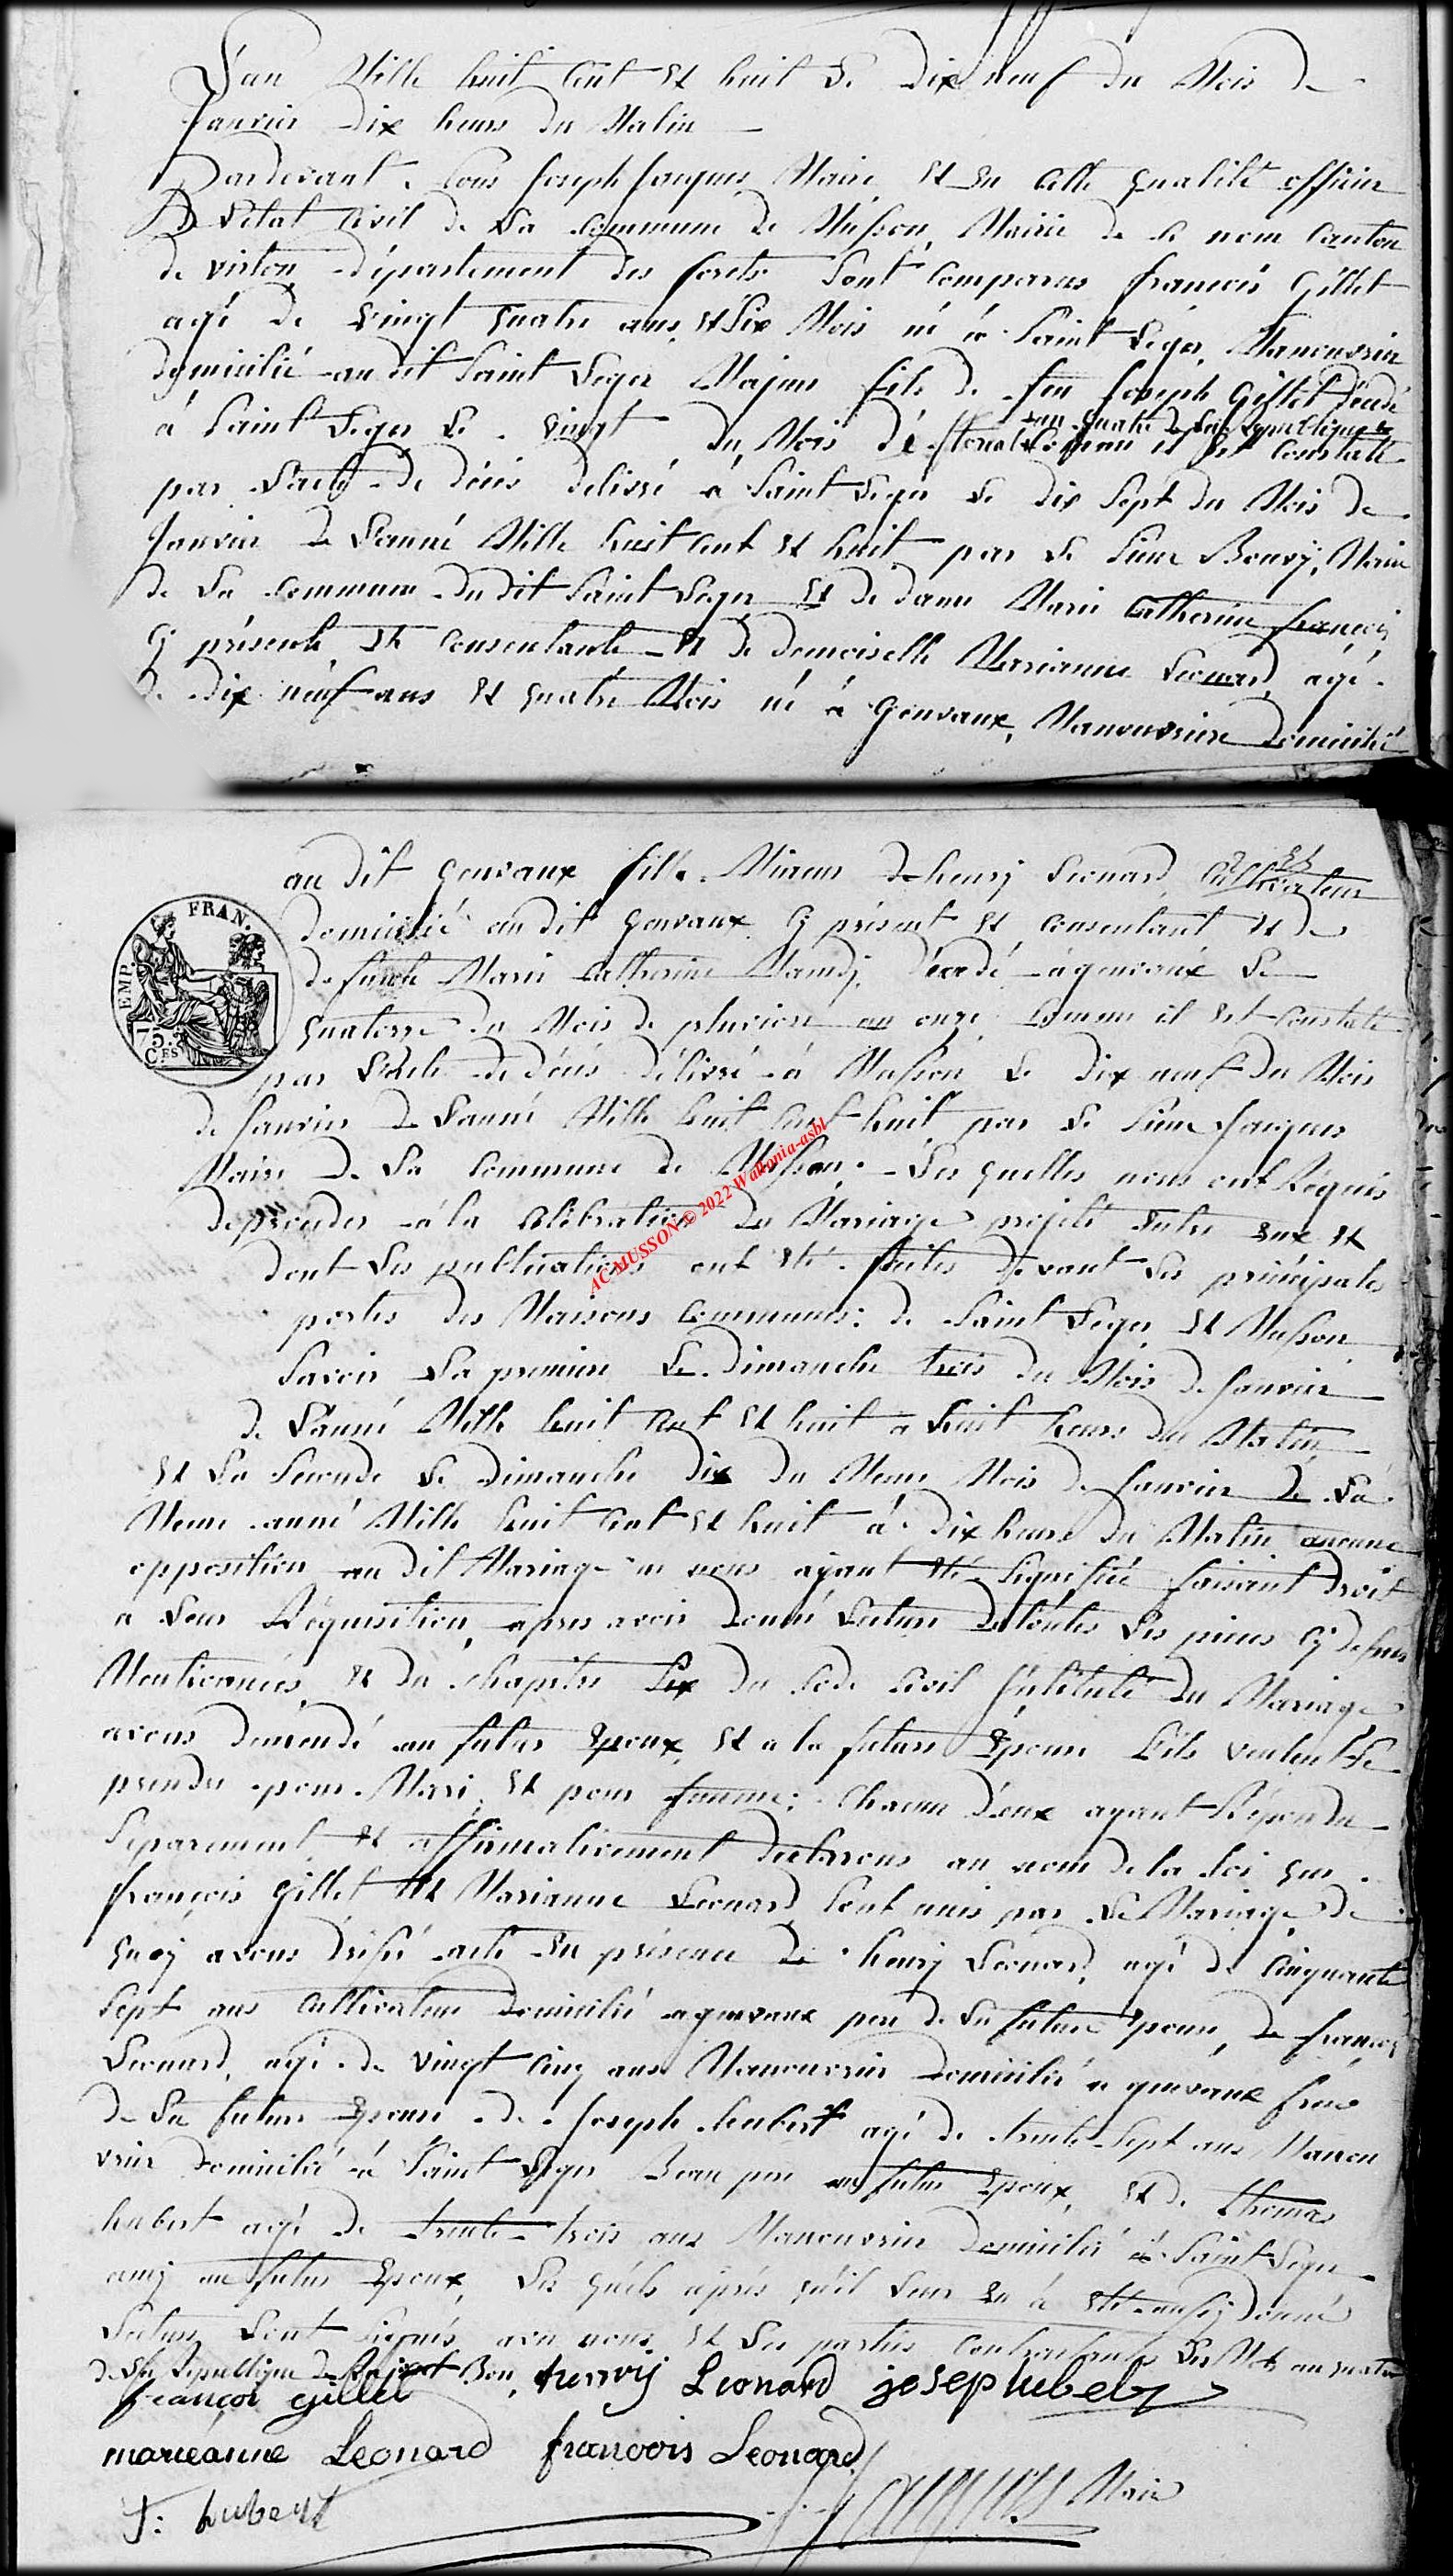 L'an Mille huit Cent Et huit Le Dix neuf du Mois De
Janvier Dix heurs du Matin
Pardevant Nous Joseph Jacques Maire Et En Cette qualité officier
De L'Etat Civil de La Commune de Musson, Mairie de Ce nom Canton
de virton département des forets Sont Comparus françois Gillet
agé De Vingt quatre ans Et Six Mois né à Saint Leger, Manouvrier
domicilié au dit Saint Leger Majeur fils de feu Joseph Gillet Décédé
an quatre de La Republique
à Saint Leger Le vingt du Mois dé floreal Comme il Est Constaté
par L'acte de décès delivré à Saint Leger Le dix Sept du Mois de
Janvier De L'anné Mille huit Cent Et huit par Le Sieur Bouvÿ, Maire
de La Commune du dit Saint Leger Et de dame Marie Catherine françois
Cÿ présente Et Consentante Et De demoiselle Marianne Leonard, agé
de dix neuf ans Et quatre Mois né à Genvaux, Manouvriere Domicilié
au dit Genvaux fille Mineur De henrÿ Leonard, Cultivateur
Domicilié au dit Genvaux Cÿ présent Et Consentant Et De
defunte Marie Catherine décédé à genvaux Le
quatorze du Mois de pluviose an onze Comme il Est Constaté
par L'acte de décès délivré à Musson Le Dix neuf du Mois
de Janvier De L'anné Mille huit Cent huit par Le Sieur Jacques
Maire De La Commune de Musson. Les quelles nous ont Réquis
de proceder à la Célébration Du Mariage projété Entre Eux Et
dont Les publications ont Eté faites devant Les principales
portes des Maisons Communes de Saint Leger Et Musson
Savoir La premiere Le dimanche trois du Mois de Janvier
de L'anné Mille huit Cent Et huit a huit heurs du Matin
Et La Seconde Le dimanche dix du Meme Mois de Janvier De La
Meme anné Mille huit Cent Et huit à dix heurs du Matin aucune
opposition au dit Mariage ne nous ayant Eté Signifiée faisant droit
a Leur Réquisition, apres avoir Donné Lecture de toutes Les pieces Cÿ dessus
Mentionnées, Et du Chapitre Six du Code Civil Intitulé Du Mariage
avons demendé au futur Epoux, Et a la future Epouse S'ils veulent Se
prendre pour Mari, Et pour femme; Chacun d'eux ayant Répondu
Separement Et affirmativement declarons au nom de la Loi que
françois Gillet Et Marianne Leonard Sont unis par Le Mariage De
quoÿ avons dressé acte En présence De henrÿ Leonard, agé de Cinquante
Sept ans Cultivateur Domicilié a genvaux pere de La future Epouse, De françois
Leonard, agé de vingt Cinq ans Manouvrier domicilié a genvaux frere
de La future Epouse de Joseph hubert agé de trente Sept ans Manou
vrier Domicilié à Saint Leger Beau pere au futur Epoux, Et de thomas
hubert agé De trente trois ans Manouvrier Domicilié à Saint Leger
amÿ au futur Epoux, Les quels après qu'il Leur En à Eté aussÿ Donné
Lecture L'ont Signés avec nous Et Les parties Contractantes Les Mots an quatre
de La Republique De Bon
françoi gillet henrrÿ Leonard josep hubert
marieánne Leonard francois Leonard
T: hubert Jacques Maire
EMP. FRAN.
75. C.ES
AC-MUSSON © 2022 Wallonia-asbl